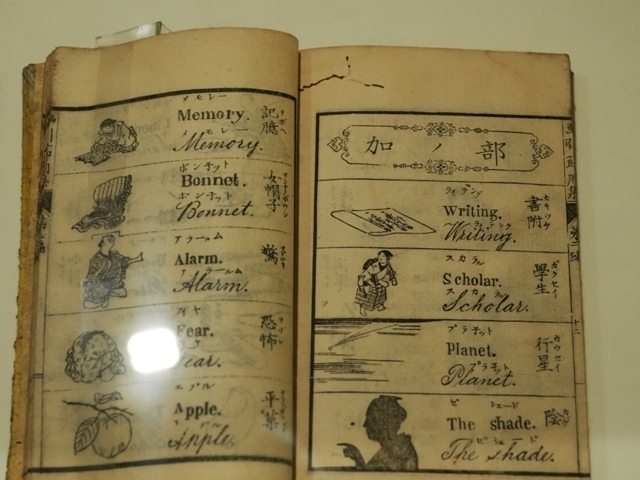 メモレー
Memory.
メモレー
Memory.
記臆
ボンチット
Bonnet.
ボンチット
Bonnet.
女帽子
アラールム
Alarm.
アラールム
Alarm.
驚
Fear.
Fear.
恐怖
エプル
Apple.
Apple.
平菓
加ノ部
ライチング
Writing.
Writing.
書附
カキツケ
スカラル
Scholar.
スカラル
Scholar.
學生
ガクセイ
プラチット
Planet.
プラチット
Planet.
行星
カウセイ
ゼ シェード
The shade.
ゼ シェード
The shade.
陰
カゲ